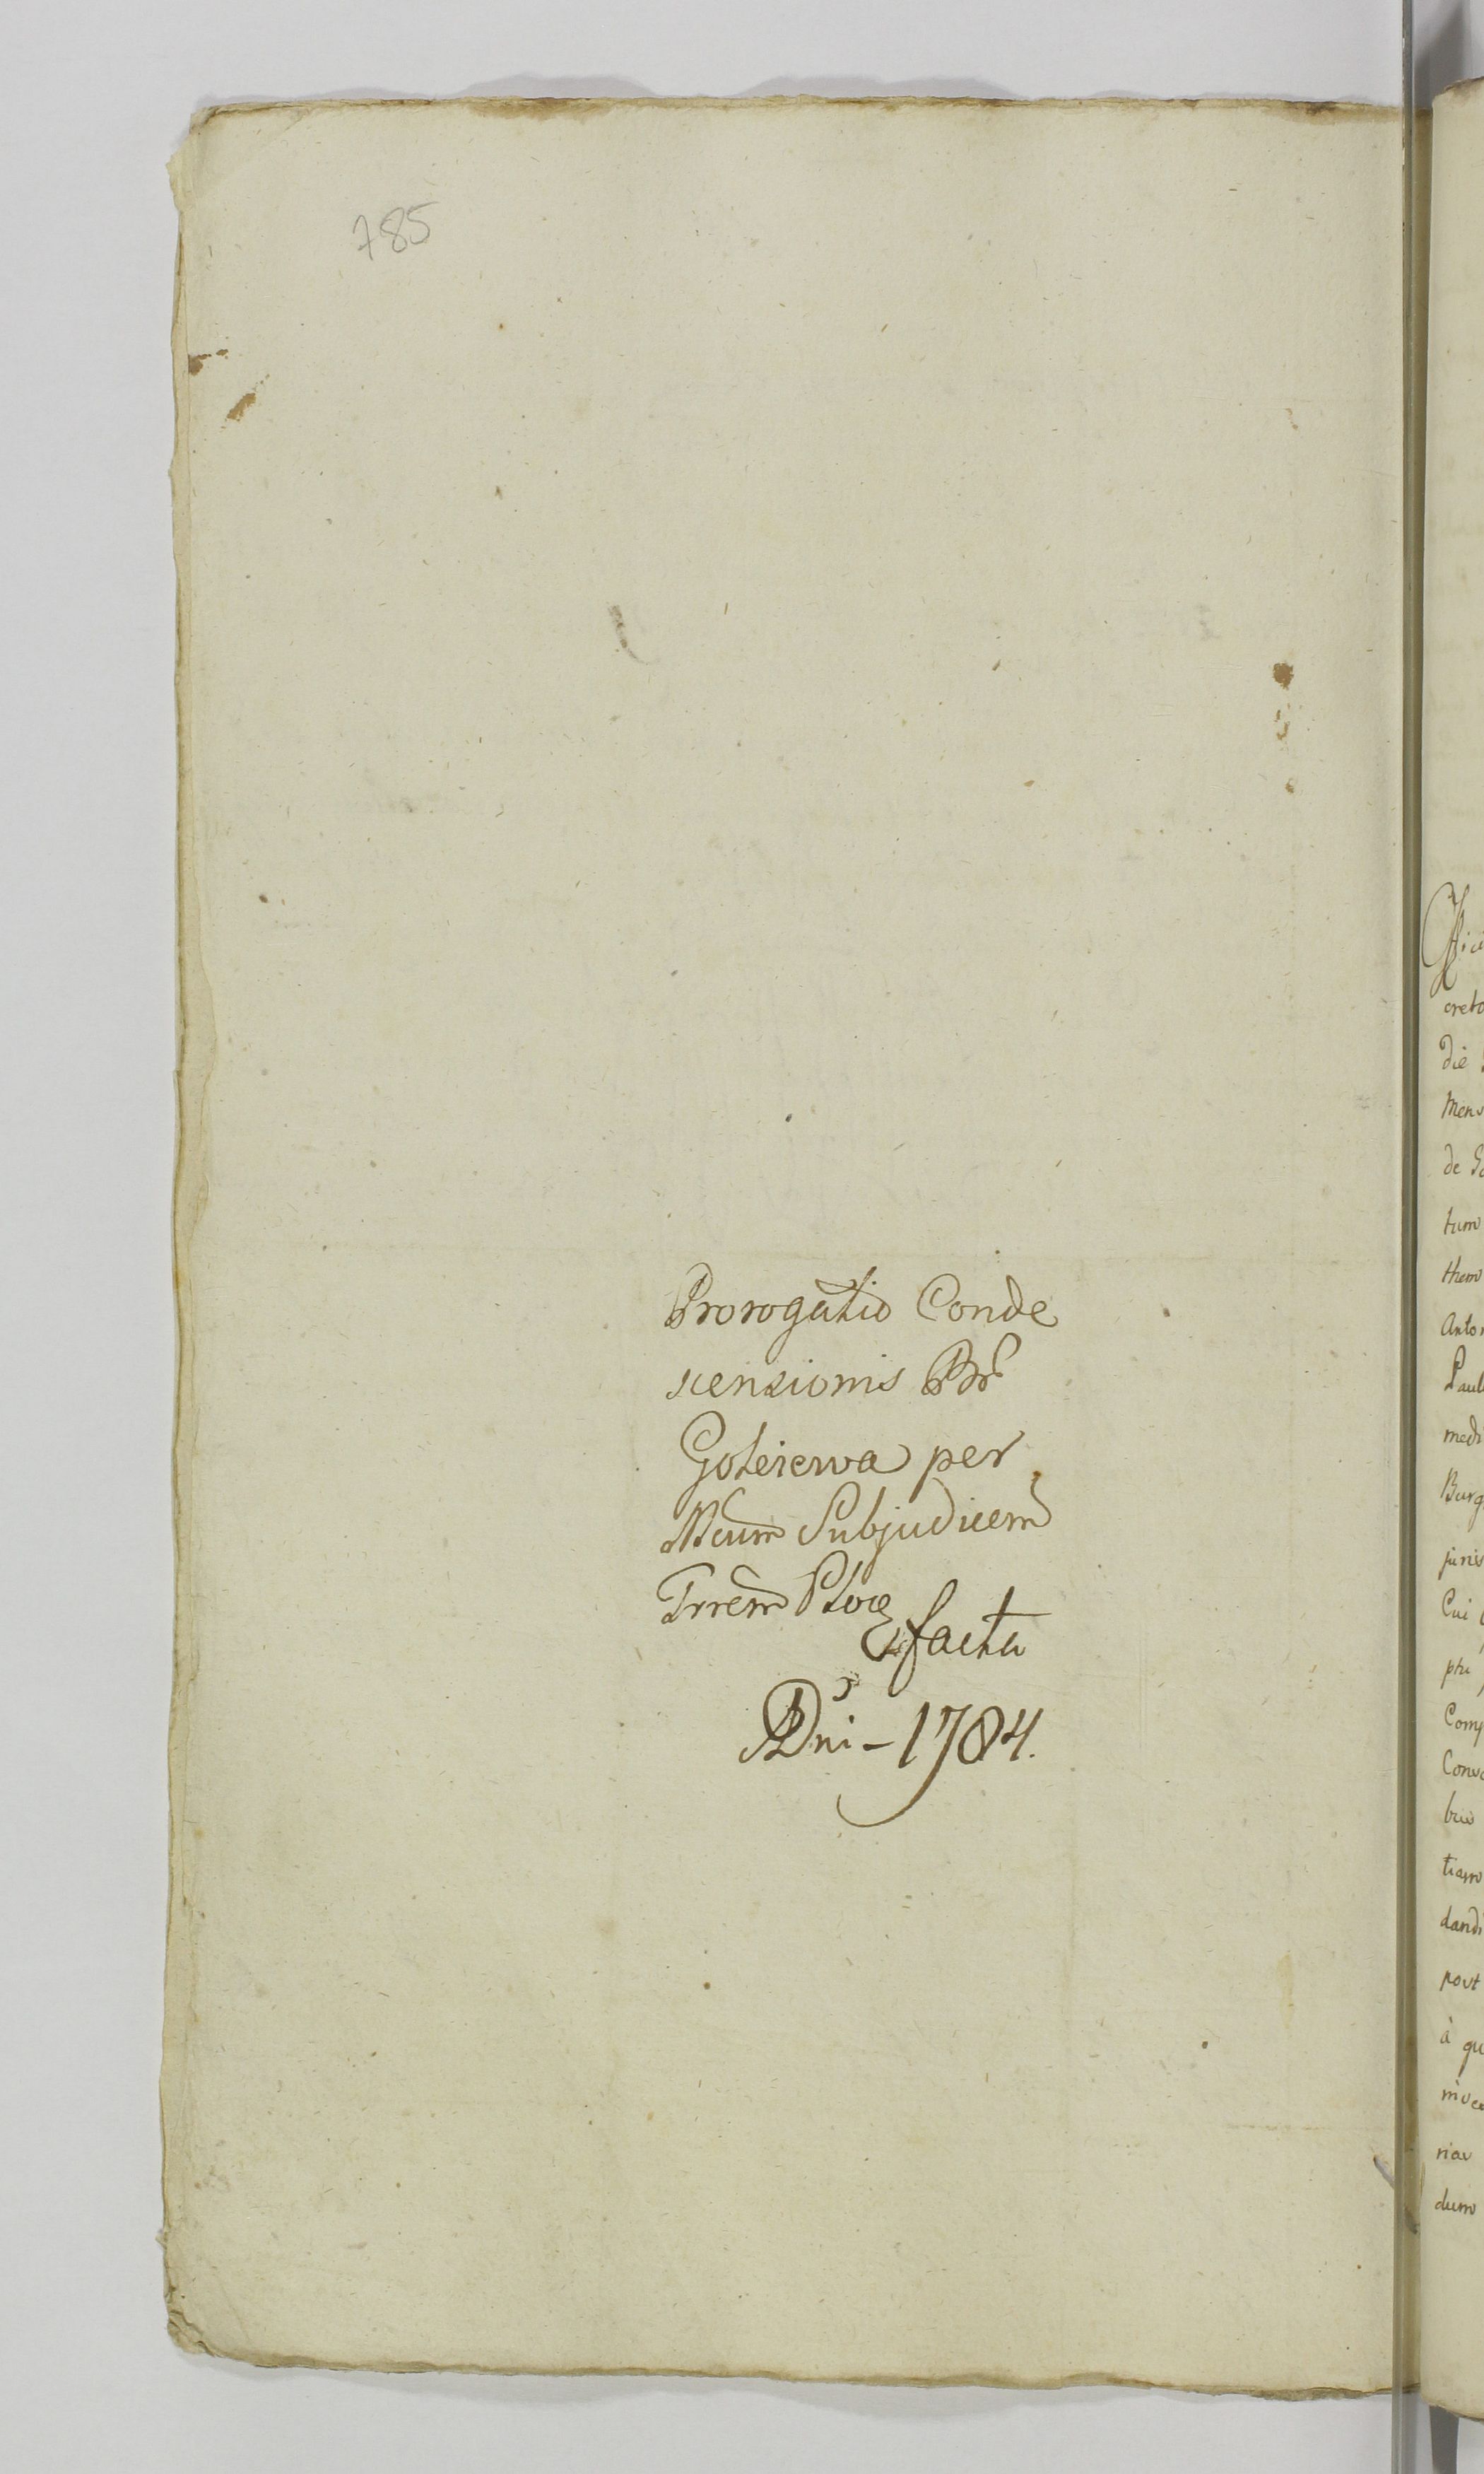 785
Prorogatio Conde
scensionis
Goleiewa per
Mcum Subjudicem
Trrem Ploc
facta
ADni - 1784.
creto
die
Mens
de
tum
them
Anto
Paul
medi
Burg
juris
Cui
Comp
dandi
post
à qu
dum